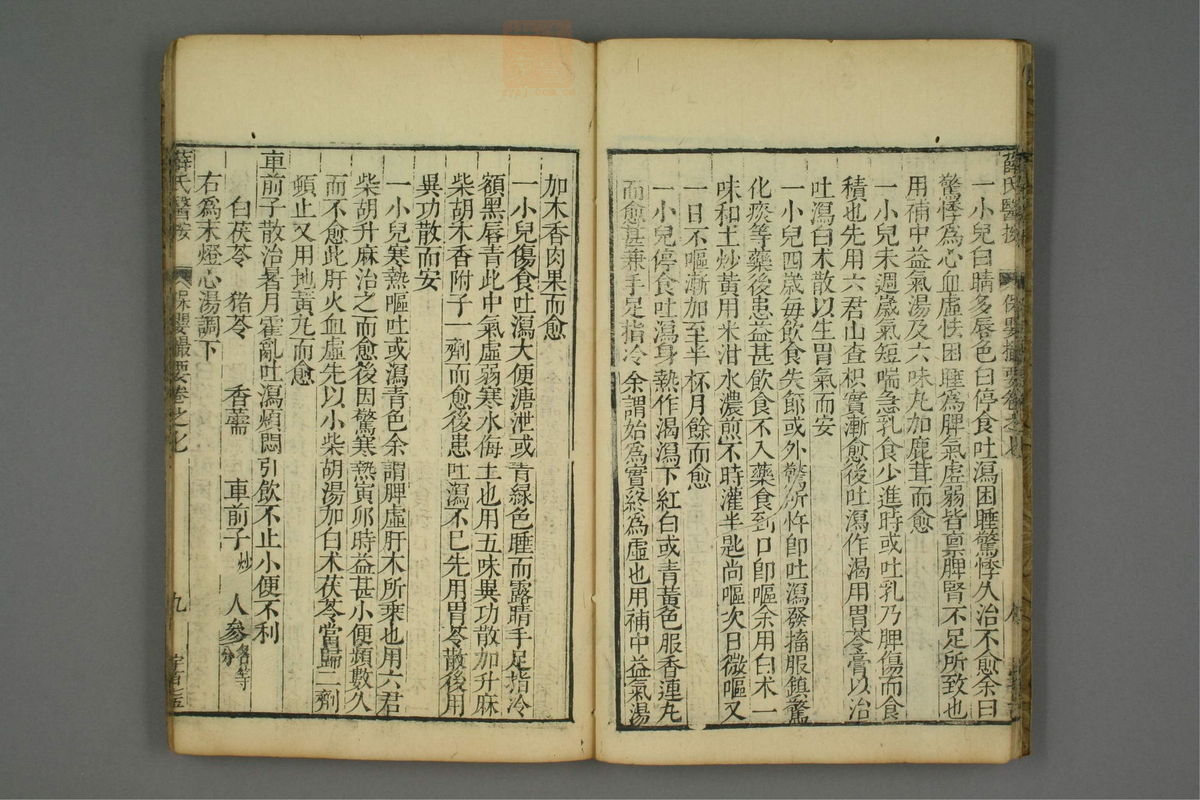 一小兒白睛多唇色白停食吐瀉困睡驚悸久治不愈余曰
驚悸爲心血虛怯困睡爲脾氣虛弱皆稟脾腎不足所致也
用補中益氣湯及六味丸加鹿茸而愈
一小兒未週歲氣短喘急乳食少進時或吐乳乃脾傷而食
積也先用六君山查枳實漸愈後吐瀉作渴用胃苓膏以治
吐瀉白术散以生胃氣而安
一小兒四歲每飲食失節或外驚所忤卽吐瀉發搐服鎮驚
化痰等藥後患益甚飲食不入藥食到口卽嘔余用白术一
味和土炒黃用米泔水濃煎不時灌半匙尚嘔次日微嘔又
一日不嘔漸加至半杯月餘而愈
一小兒停食吐瀉身熱作渴瀉下紅白或青黃色服香連丸
而愈甚兼手足指冷余謂始爲實終爲虛也用補中益氣湯
加木香肉果而愈
一小兒傷食吐瀉大便溏泄或青綠色睡而露睛手足指冷
額黑唇青此中氣虛弱寒水侮土也用五味異功散加升麻
柴胡木香附子一劑而愈後患吐瀉不已先用胃苓散後用
異功散而安
一小兒寒熱嘔吐或瀉青色余謂脾虛肝木所乘也用六君
柴胡升麻治之而愈後因驚寒熱寅卯時益甚小便頻數久
而不愈此肝火血虛先以小柴胡湯加白术茯苓當歸二劑
頓止又用地黃丸而愈
車前子散治暑月霍亂吐瀉煩悶引飲不止小便不利
白茯苓 猪苓 香薷 車前子炒 人參各等分
右爲末燈心湯調下
薛氏醫按 保嬰撮要卷之七 九